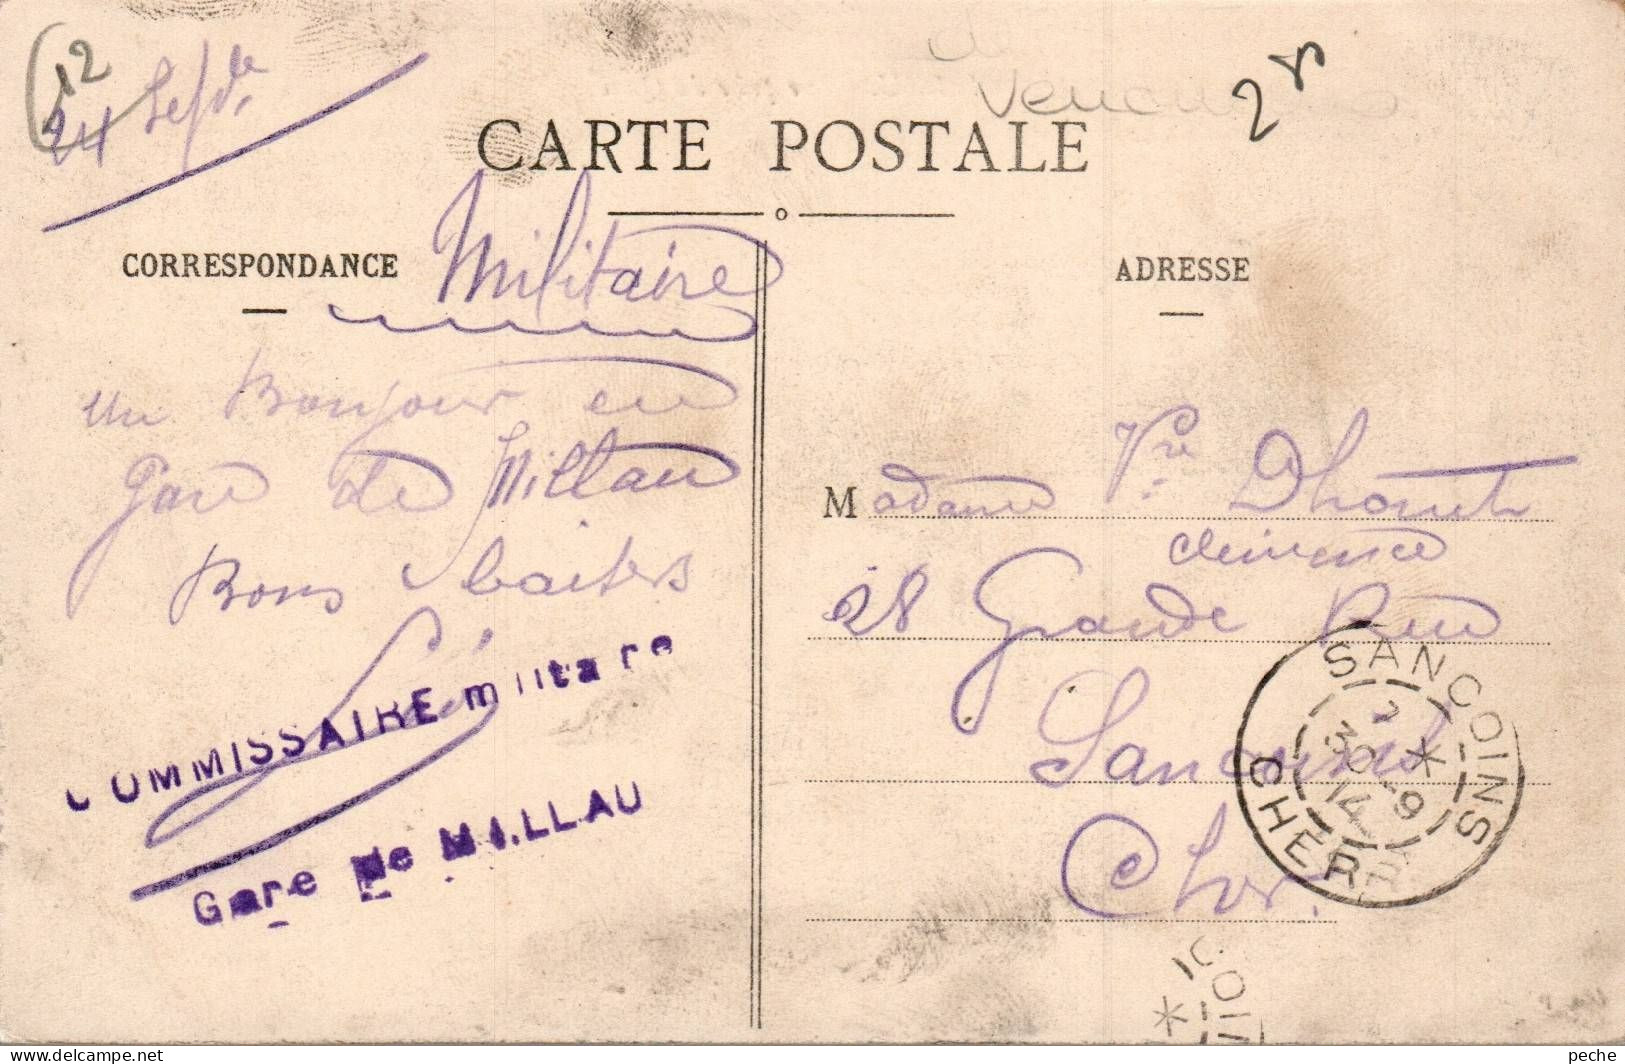 12
24 Sepbre
2
CARTE POSTALE
CORRESPONDANCE
Militaire
Un Bonjour en
Gare de Millau
Bons baisers
COMMISSAIRE militaire
Gare De MILLAU
ADRESSE
Madame Vve Dhouet
Clemence
28 Grande Rue
Sancoins
Cher
SANCOINS
7
30-9
14
CHER
COIN
delcampe.net
peche